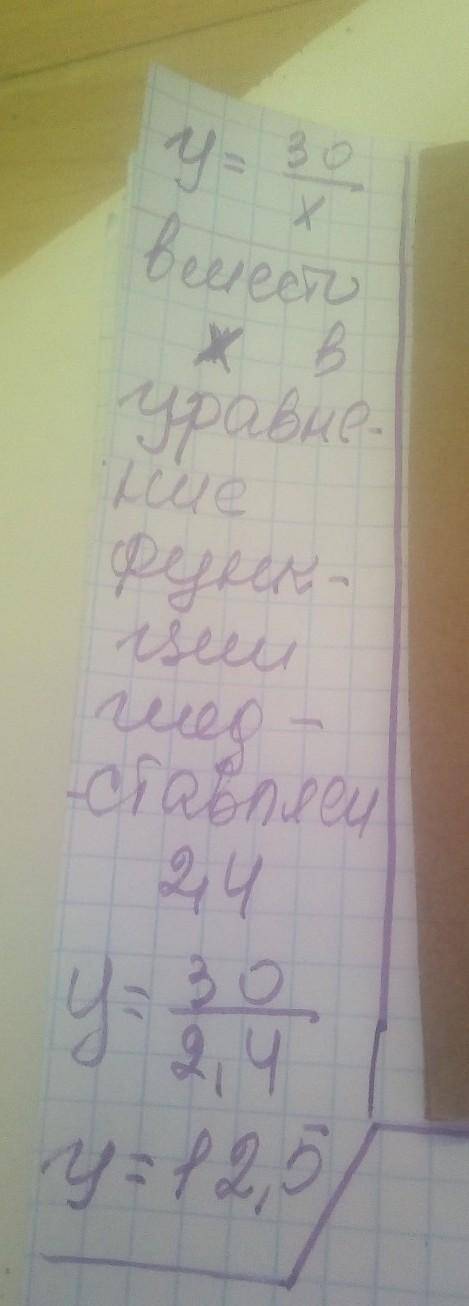 y = 30/x
вместо
x в
уравне-
ние
функ-
ции
под-
-ставляем
2,4
y = 30/2,4
y = 12,5